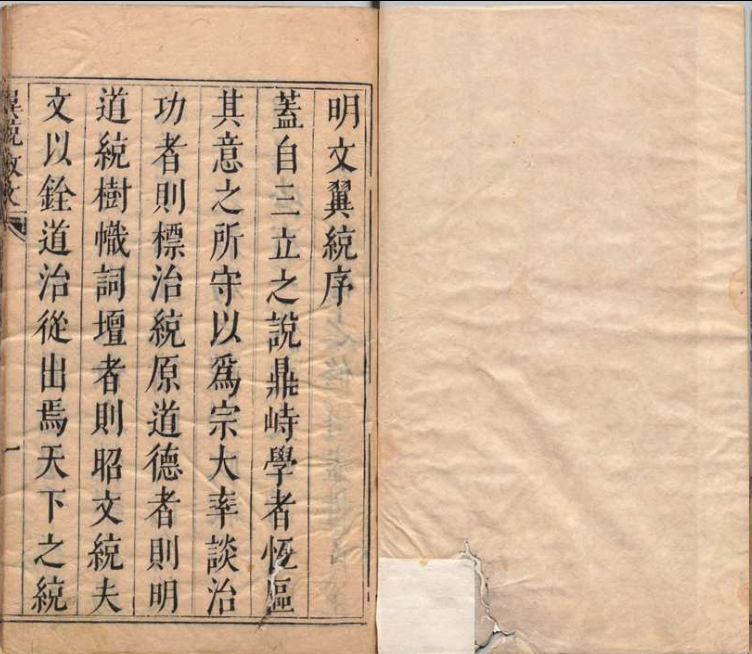 明文翼統序
蓋自三立之說鼎峙學者恆區
其意之所守以爲宗大率談治
功者則標治統原道德者則明
道統樹幟詞壇者則昭文統夫
文以銓道治從出焉天下之統
一